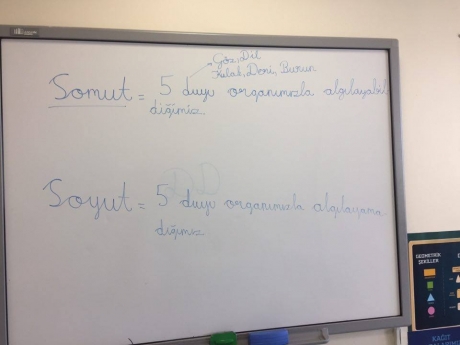 Göz, Dil
Kulak, Deri, Burun
Somut = 5 duyu organımızla algılayabil
diğimiz
Soyut = 5 duyu organımızla algılayama-
dığımız
GEOMETRİK
ŞEKİLLER
KAĞIT